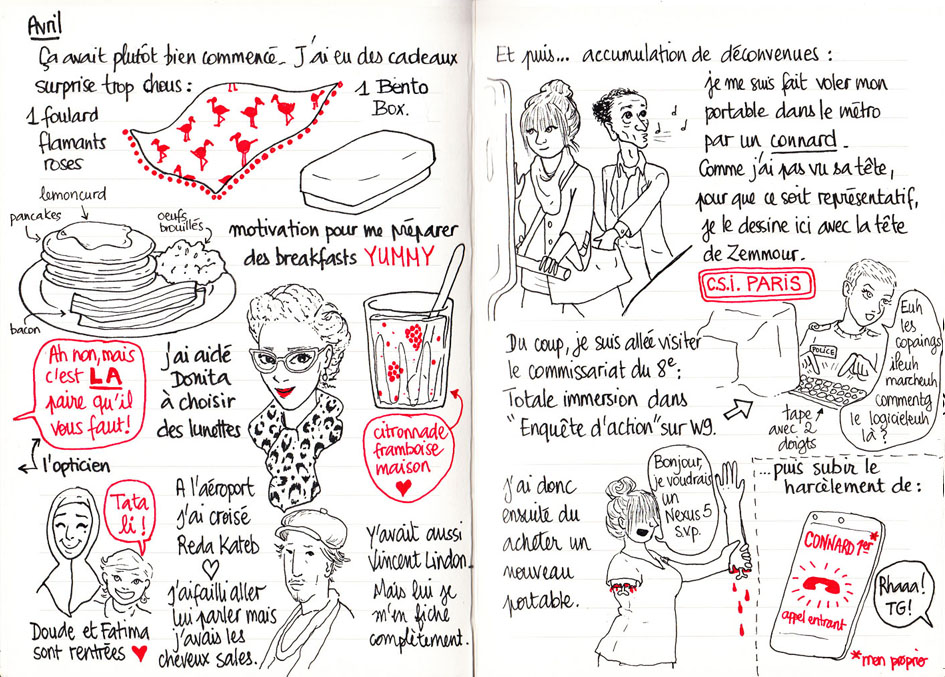 Avril
Ça avait plutôt bien commencé. J'ai eu des cadeaux
surprise trop chous :
1 foulard
flamants
roses
1 Bento
Box.
lemoncurd
pancakes
oeufs
brouillés
bacon
motivation pour me préparer
des breakfasts YUMMY
Ah non, mais
c'est LA
paire qu'il
vous faut!
l'opticien
j'ai aidé
Donita
à choisir
des lunettes
citronnade
framboise
maison
Tata
li!
Doude et Fatima
sont rentrées
A l'aéroport
j'ai croisé
Reda Kateb
j'ai failli aller
lui parler mais
j'avais les
cheveux sales.
Y'avait aussi
Vincent Lindon.
Mais lui je
m'en fiche
complètement.
Et puis... accumulation de déconvenues :
je me suis fait voler mon
portable dans le métro
par un connard.
Comme j'ai pas vu sa tête,
pour que ce soit représentatif,
je le dessine ici avec la tête
de Zemmour.
C.S.i. PARIS
Du coup, je suis allée visiter
le commissariat du 8e:
Totale immersion dans
"Enquête d'action" sur W9.
POLICE
tape
avec 2
doigts
Euh
les
copaings
ileuh
marcheuh
commentg
le logicieleuh
là?
J'ai donc
ensuite du
acheter un
nouveau
portable.
Bonjour,
je voudrais
un
Nexus 5
S.V.P.
...puis subir le
harcèlement de :
CONNARD 1er*
appel entrant
Rhaaa!
TG!
*mon proprio